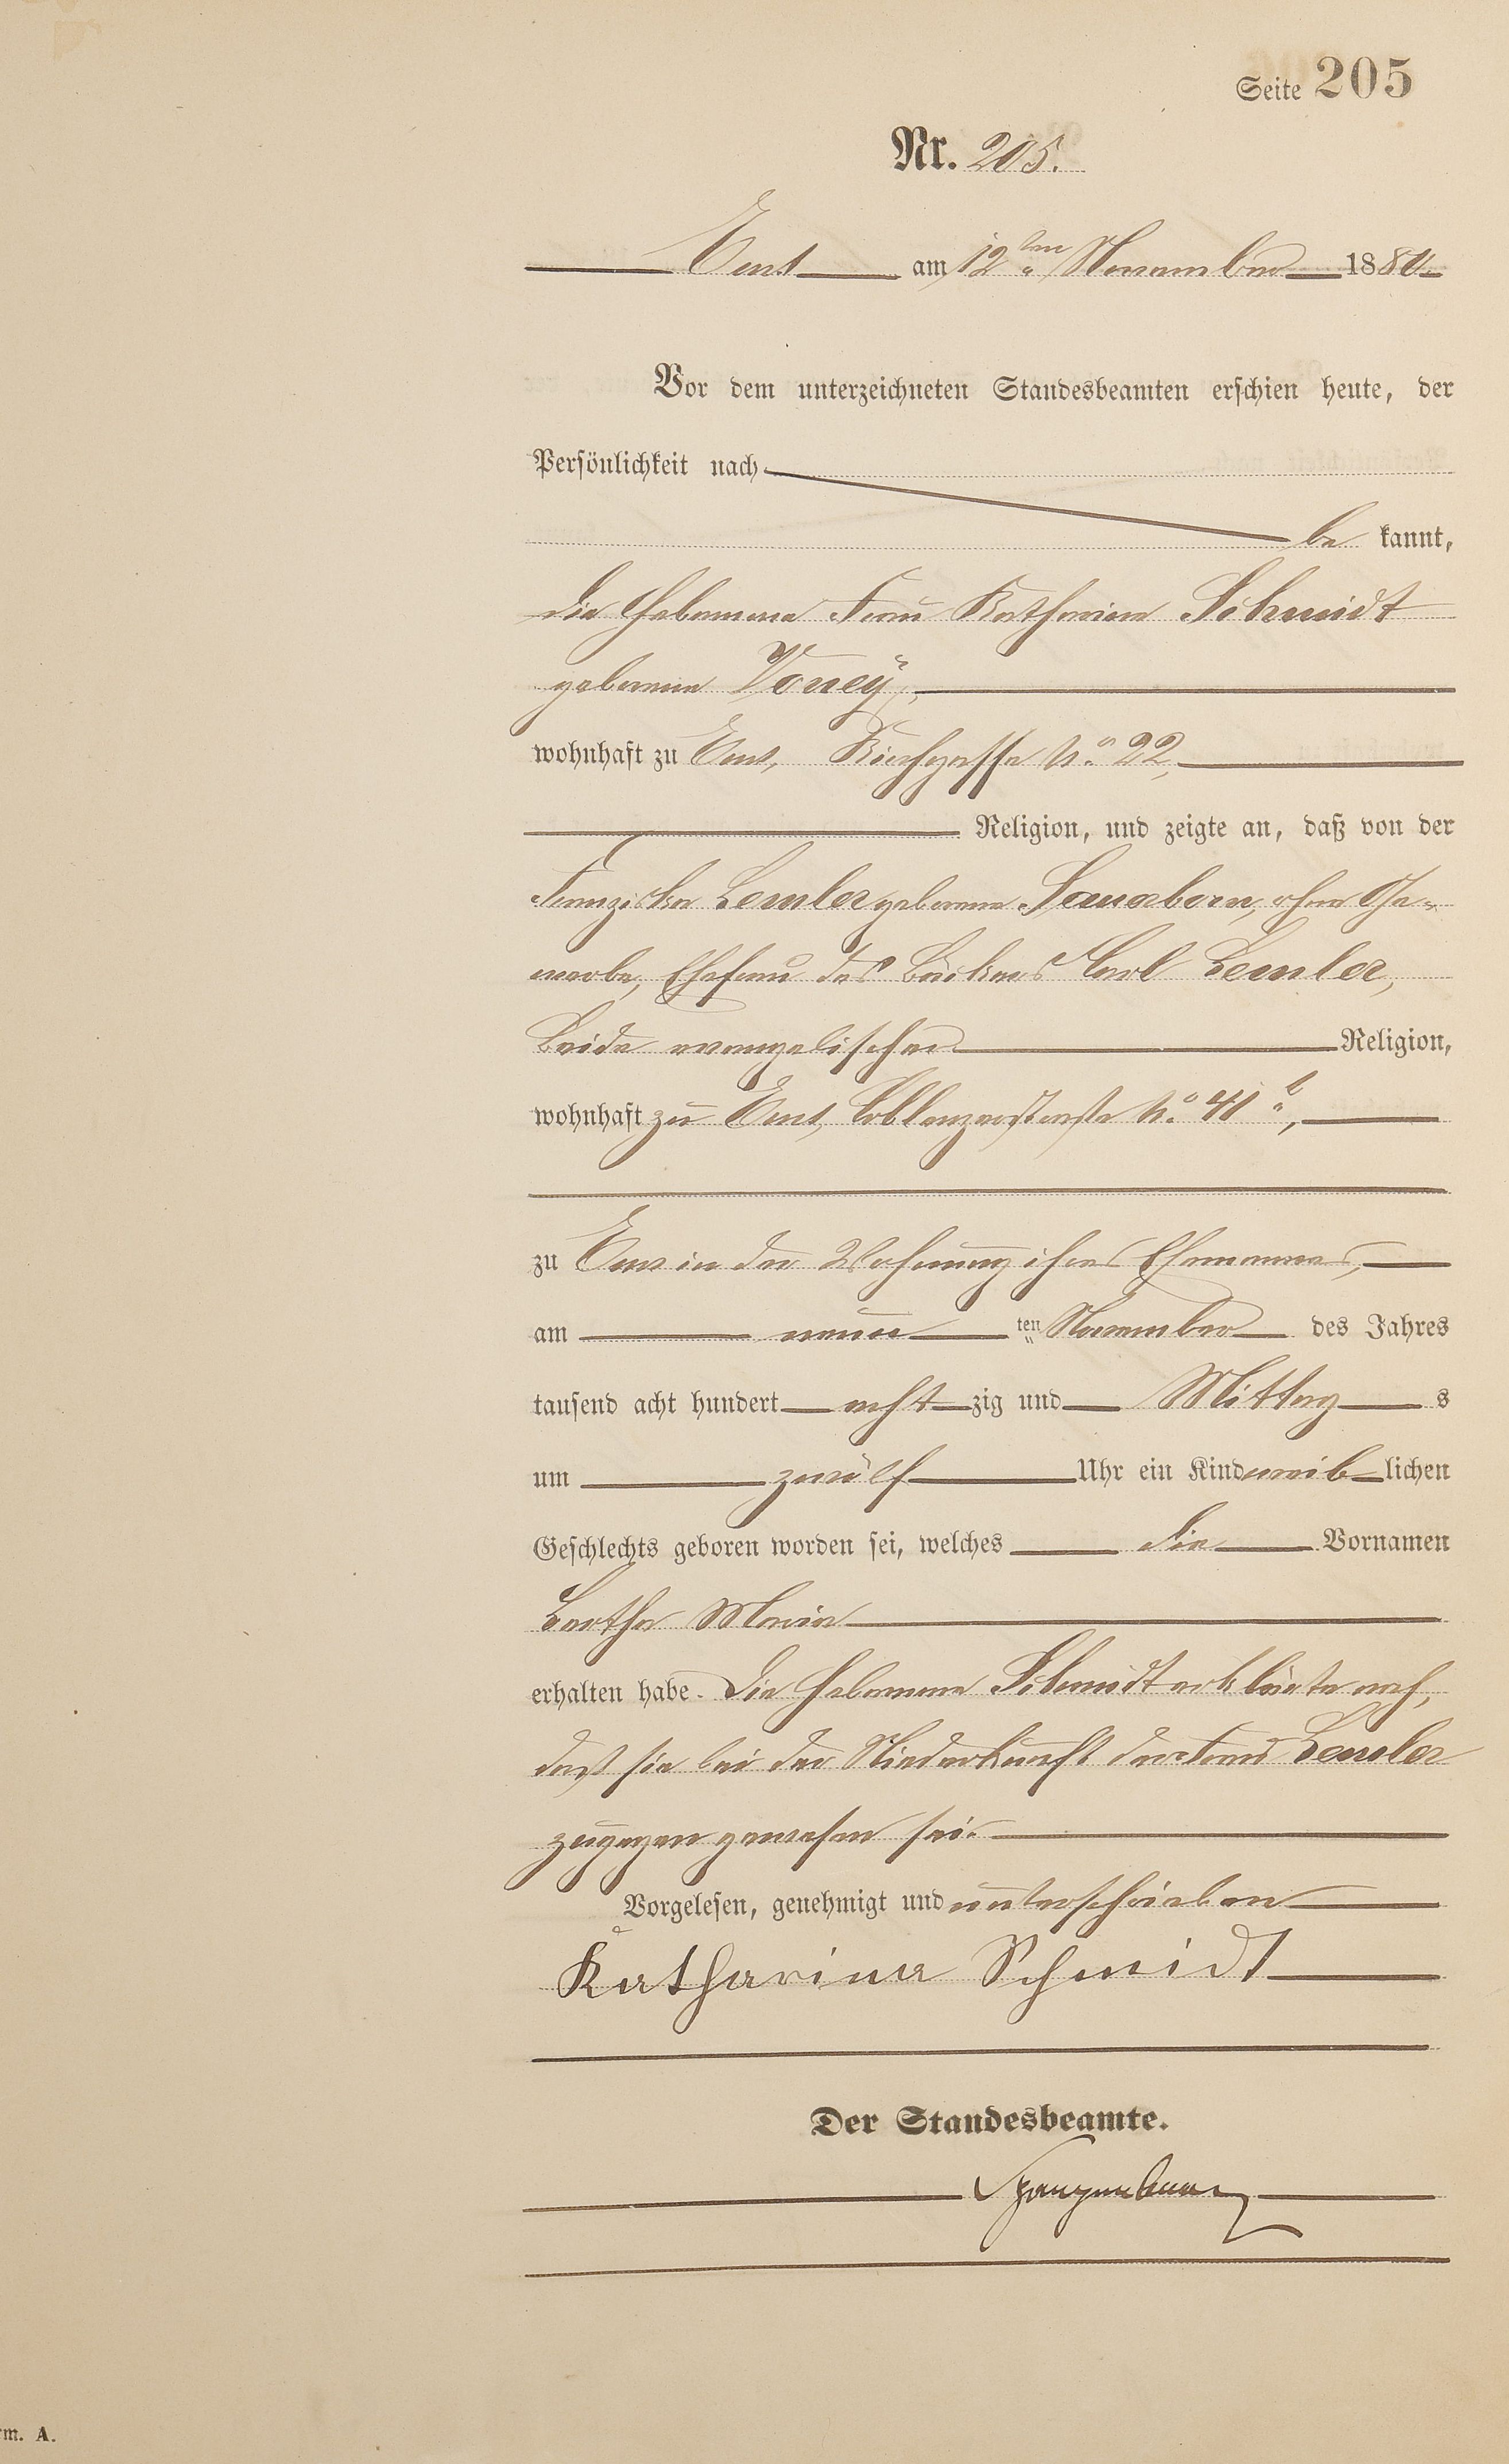 Seite 205
Nr. 205.
Ems am 12ten November 1880.
Vor dem unterzeichneten Standesbeamten erschien heute, der
Persönlichkeit nach
be kannt,
die Hebamme Frau Katharina Schmidt
geborene
wohnhaft zu Ems, Kirchgasse No. 22,
Religion, und zeigte an, daß von der
Franziska Lemler geborene ohne Ge-
werbe, Ehefrau des Bäckers Carl Lemler,
Beide evangelischer Religion,
wohnhaft zu Ems, Coblenzerstraße No. 41 b,
zu Ems in der Wohnung ihres Ehemannes,
am neun ten November des Jahres
tausend acht hundert acht zig und Mittag s
um zwölf Uhr ein Kind weib lichen
Geschlechts geboren worden sei, welches die Vornamen
Bertha Maria
erhalten habe. Die Hebamme Schmidt erklärte noch,
daß sie bei der Niederkunft der Frau Lemler
zugegen gewesen sei.
Vorgelesen, genehmigt und unterschrieben
Katharina Schmidt
Der Standesbeamte.
rm. A.